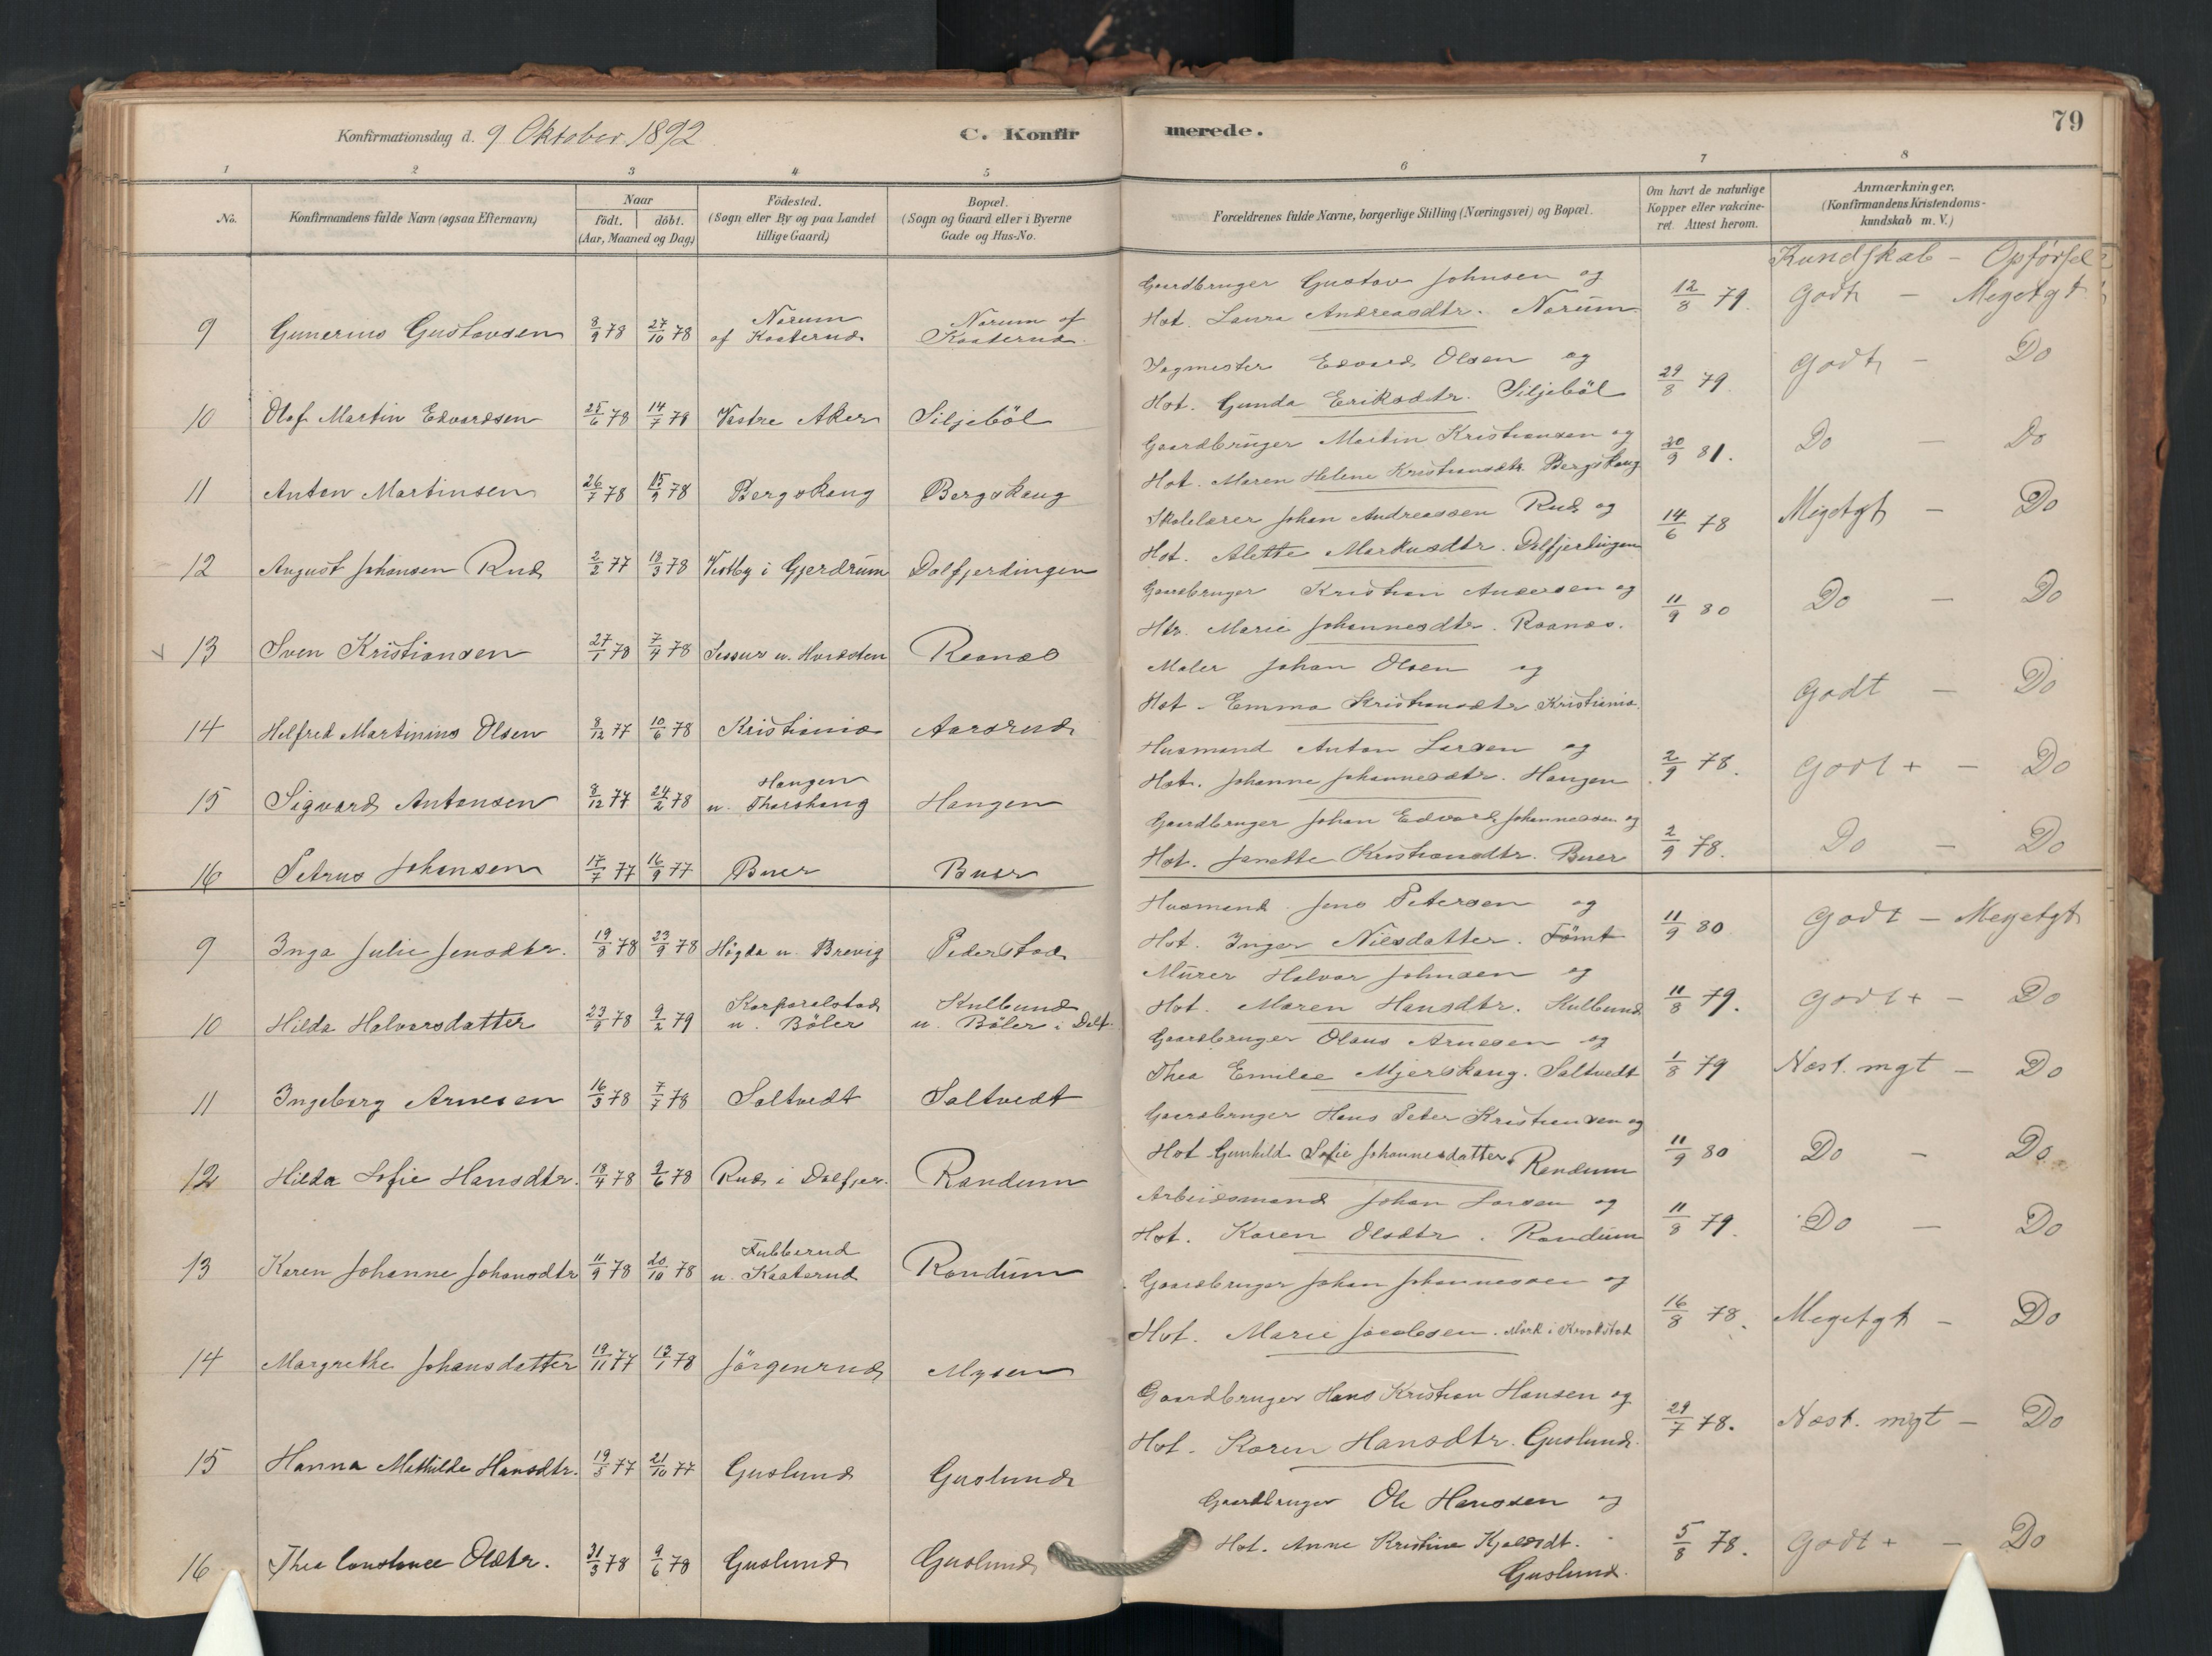 Konfirmationsdag d. 9 Oktober 1892
C. Konfirmerede.
79
1 2 3 4 5 6 7 8
No.
Konfirmandens fulde Navn (ogsaa Efternavn)
Naar
födt. döbt.
(Aar, Maaned og Dag)
Födested.
(Sogn eller By og paa Landet
tillige Gaard)
Bopæl.
(Sogn og Gaard eller i Byerne
Gade og Hus-No.
Forældrenes fulde Navne, borgerlige Stilling (Næringsvei) og Bopæl.
Om havt de naturlige
Kopper eller vakcine-
ret. Attest herom.
Anmærkninger,
(Konfirmandens Kristendoms-
kundskab m. V.)
Kundskab - Opførsel
Gaardbruger Gustav Johnsen og
Norum Norum af
9 Gunerius Gustavsen 8/9 78 27/10 78 af Kaaterud Kaaterud Hst. Laura Andreasdtr. Norum 12/8 79. Godt - Megetgt
Sagmester Edvard Olsen og
10 Olaf Martin Edvardsen 25/6 78 14/7 78 Vestre Aker Siljeböl Hst. Gunda Eriksdtr. Siljeböl 29/8 79 Godt - Do
Gaardbruger Martin Kristiansen og
11 Anton Martinsen 26/7 78 15/9 78 Bergskaug Bergskaug Hst. Maren Helene Kristiansdtr. Bergskaug 20/9 81. Do - Do
Skolelærer Johan Andreassen Rud og
12 August Johansen Rud 2/2 77 13/3 78 Vestby i Gjerdrum Dalfjerdingen Hst. Alette Markusdtr. Dalfjerdingen 14/6 78 Megetgt - Do
Gaardbruger Kristian Andersen og
13 Sven Kristiansen 27/1 78 7/4 78 u. Raanæs Htr. Marie Johannesdtr. Raanæs. 11/9 80 Do - Do
Maler Johan Olsen og
14 Helfred Martinius Olsen 8/12 77 10/6 78 Kristiania Aarsrud Hst. Emma Kristiansdtr Kristiania. Godt - Do
Husmand Anton Larsen og
Haugen
15 Sigvard Antonsen 8/12 77 24/2 78 u. Thorshaug Haugen Hst. Johanne Johannesdtr. Haugen 2/9 78. Godt + - Do
Gaardbruger Johan Edvard Johannessen og
16 Petrus Johansen 17/7 77 16/9 77 Buer Buer Hst. Janette Kristiansdtr. Buer 2/9 78. Do - Do
Husmand Jens Petersen og
9 Inga Julie Jensdtr. 19/8 78 23/9 78 Högda u. Brevig Pederstad Hst. Inger Nilsdatter. Tömt 11/9 80 Godt - Megetgt
Murer Halvor Johnsen og
Korporalstad Kulbund
10 Hilda Halvorsdatter 23/9 78 9/2 79 u. Böler u. Böler i Dalf. Hst. Maren Hansdtr. Kulbund 11/8 79. Godt + - Do
Gaardbruger Olaus Arnesen og
11 Ingeborg Arnesen 16/3 78 7/7 78 Saltvedt Saltvedt Thea Emilee Mjerskaug. Saltvedt 1/8 79 Næst. mgt - Do
Gaardbruger Hans Peter Kristiansen og
12 Hilda Sofie Hansdtr. 18/4 78 9/6 78 Rud i Dalfjer. Randum Hst Gunhild Sofie Johannesdatter. Randum 11/9 80 Do - Do
Arbeidsmand Johan Larsen og
Tubberud
13 Karen Johanne Johansdtr 11/9 78 20/10 78 u. Kaaterud Randum Hst. Karen Olsdtr. Randum 11/8 79. Do - Do
Gaardbruger Johan Johannessen og
14 Margrethe Johansdatter 19/11 77 13/1 78 Jörgenrud Mysen Hst. Marie Jacobsen. Mork i Kraakstad 16/8 78. Megetgt - Do
Gaardbruger Hans Kristian Hansen og
15 Hanna Mathilde Hansdtr. 19/5 77 21/10 77 Guslund Guslund Hst. Karen Hansdtr. Guslund. 29/7 78. Næst. mgt - Do
Gaardbruger Ole Hanssen og
16 Thea Constance Olsdtr. 31/3 78 9/6 78 Guslund Guslund Hst. Anne Kristine 5/8 78. Godt + - Do
Guslund.